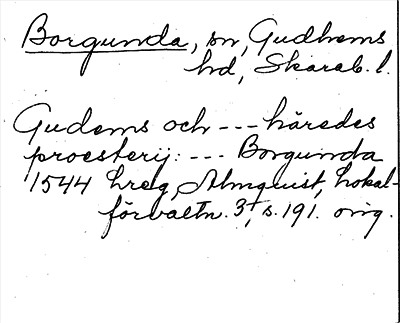 Borgunda, sn, Gudhems
hd, Skarab. l.
Gudems och --- häredes
proesterij: --- Borgunda
1544 hreg, Almquist, Lokal-
förvaltn. 3, s. 191. orig.